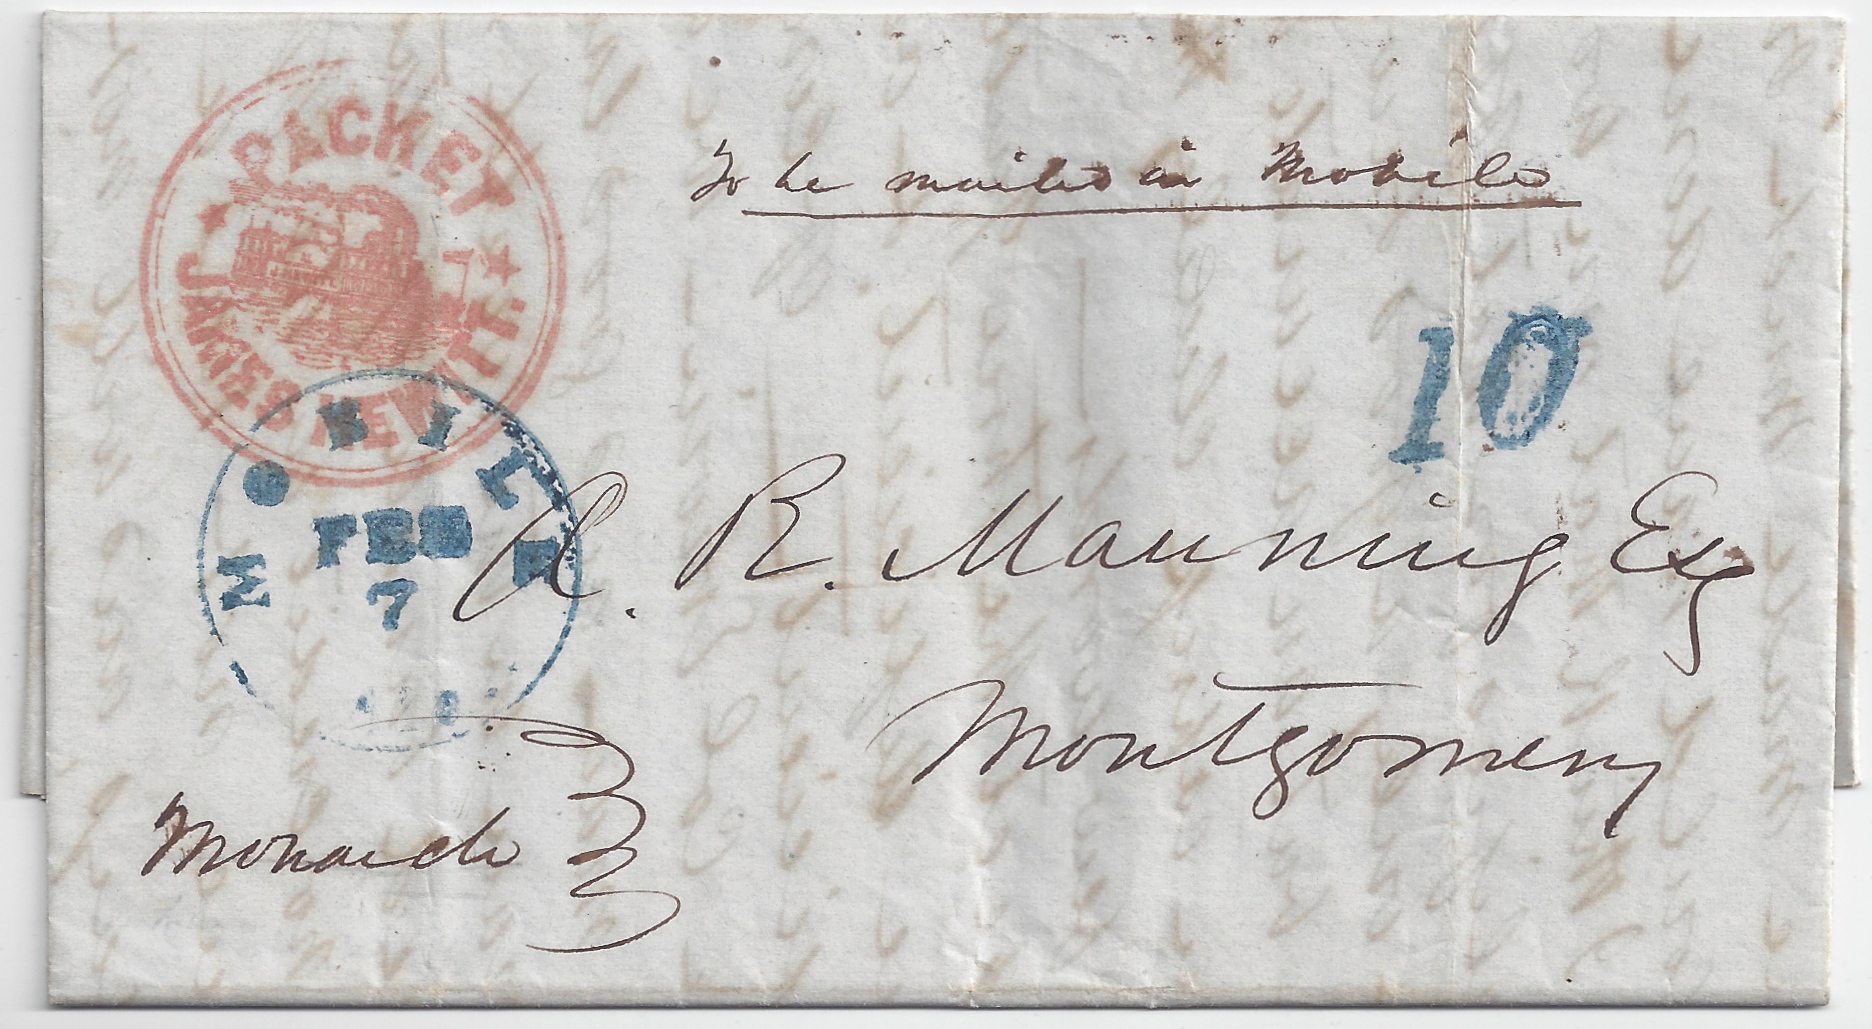 PACKET
JAMES HEWITT
To be mailed in Mobile
10
MOBILE
FEB
7
A. R. Manning Esq
Montgomery
Monarch